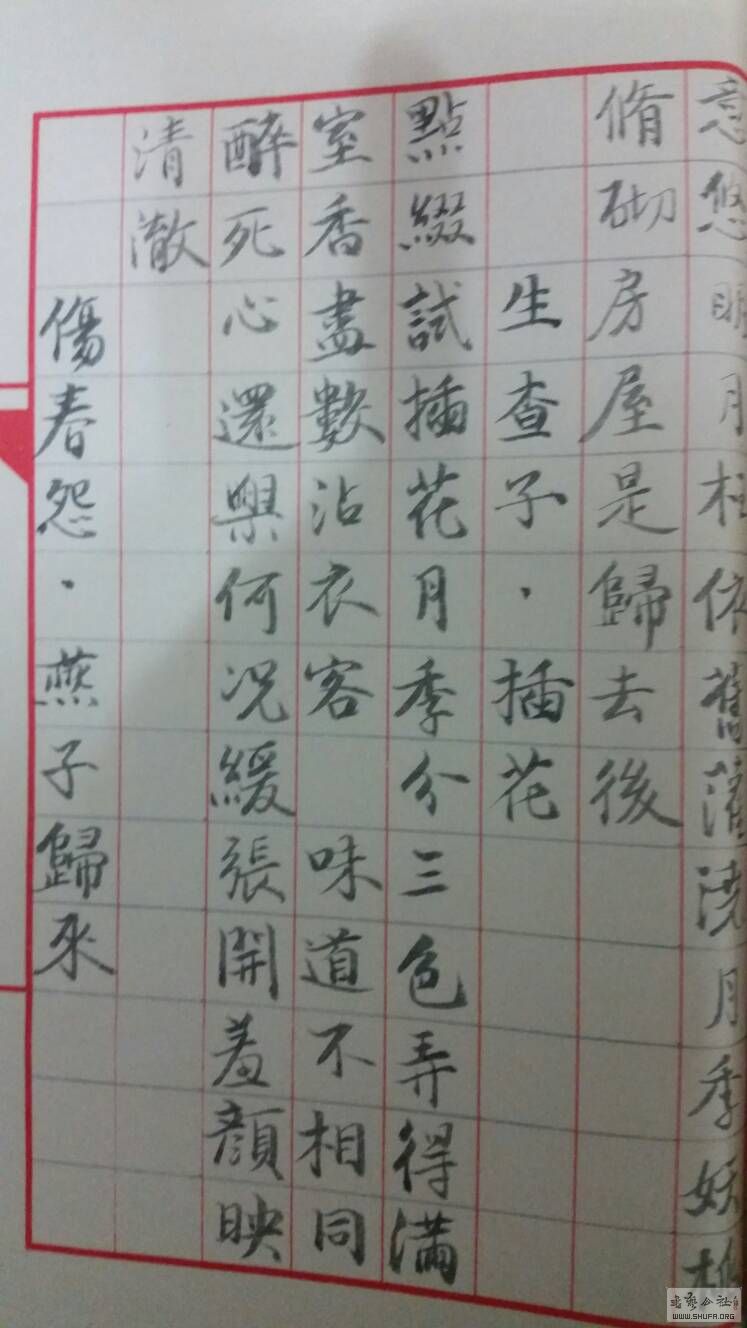 意悠明月柱依舊灌澆月季妖
脩砌房屋是歸去後
生查子·插花
點綴試插花月季分三色弄得滿
室香盡數沾衣客 味道不相同
醉死心還與何況緩張開羞顏映
清澈
傷春怨·燕子歸來
書藝公社
WWW.SHUFA.ORG